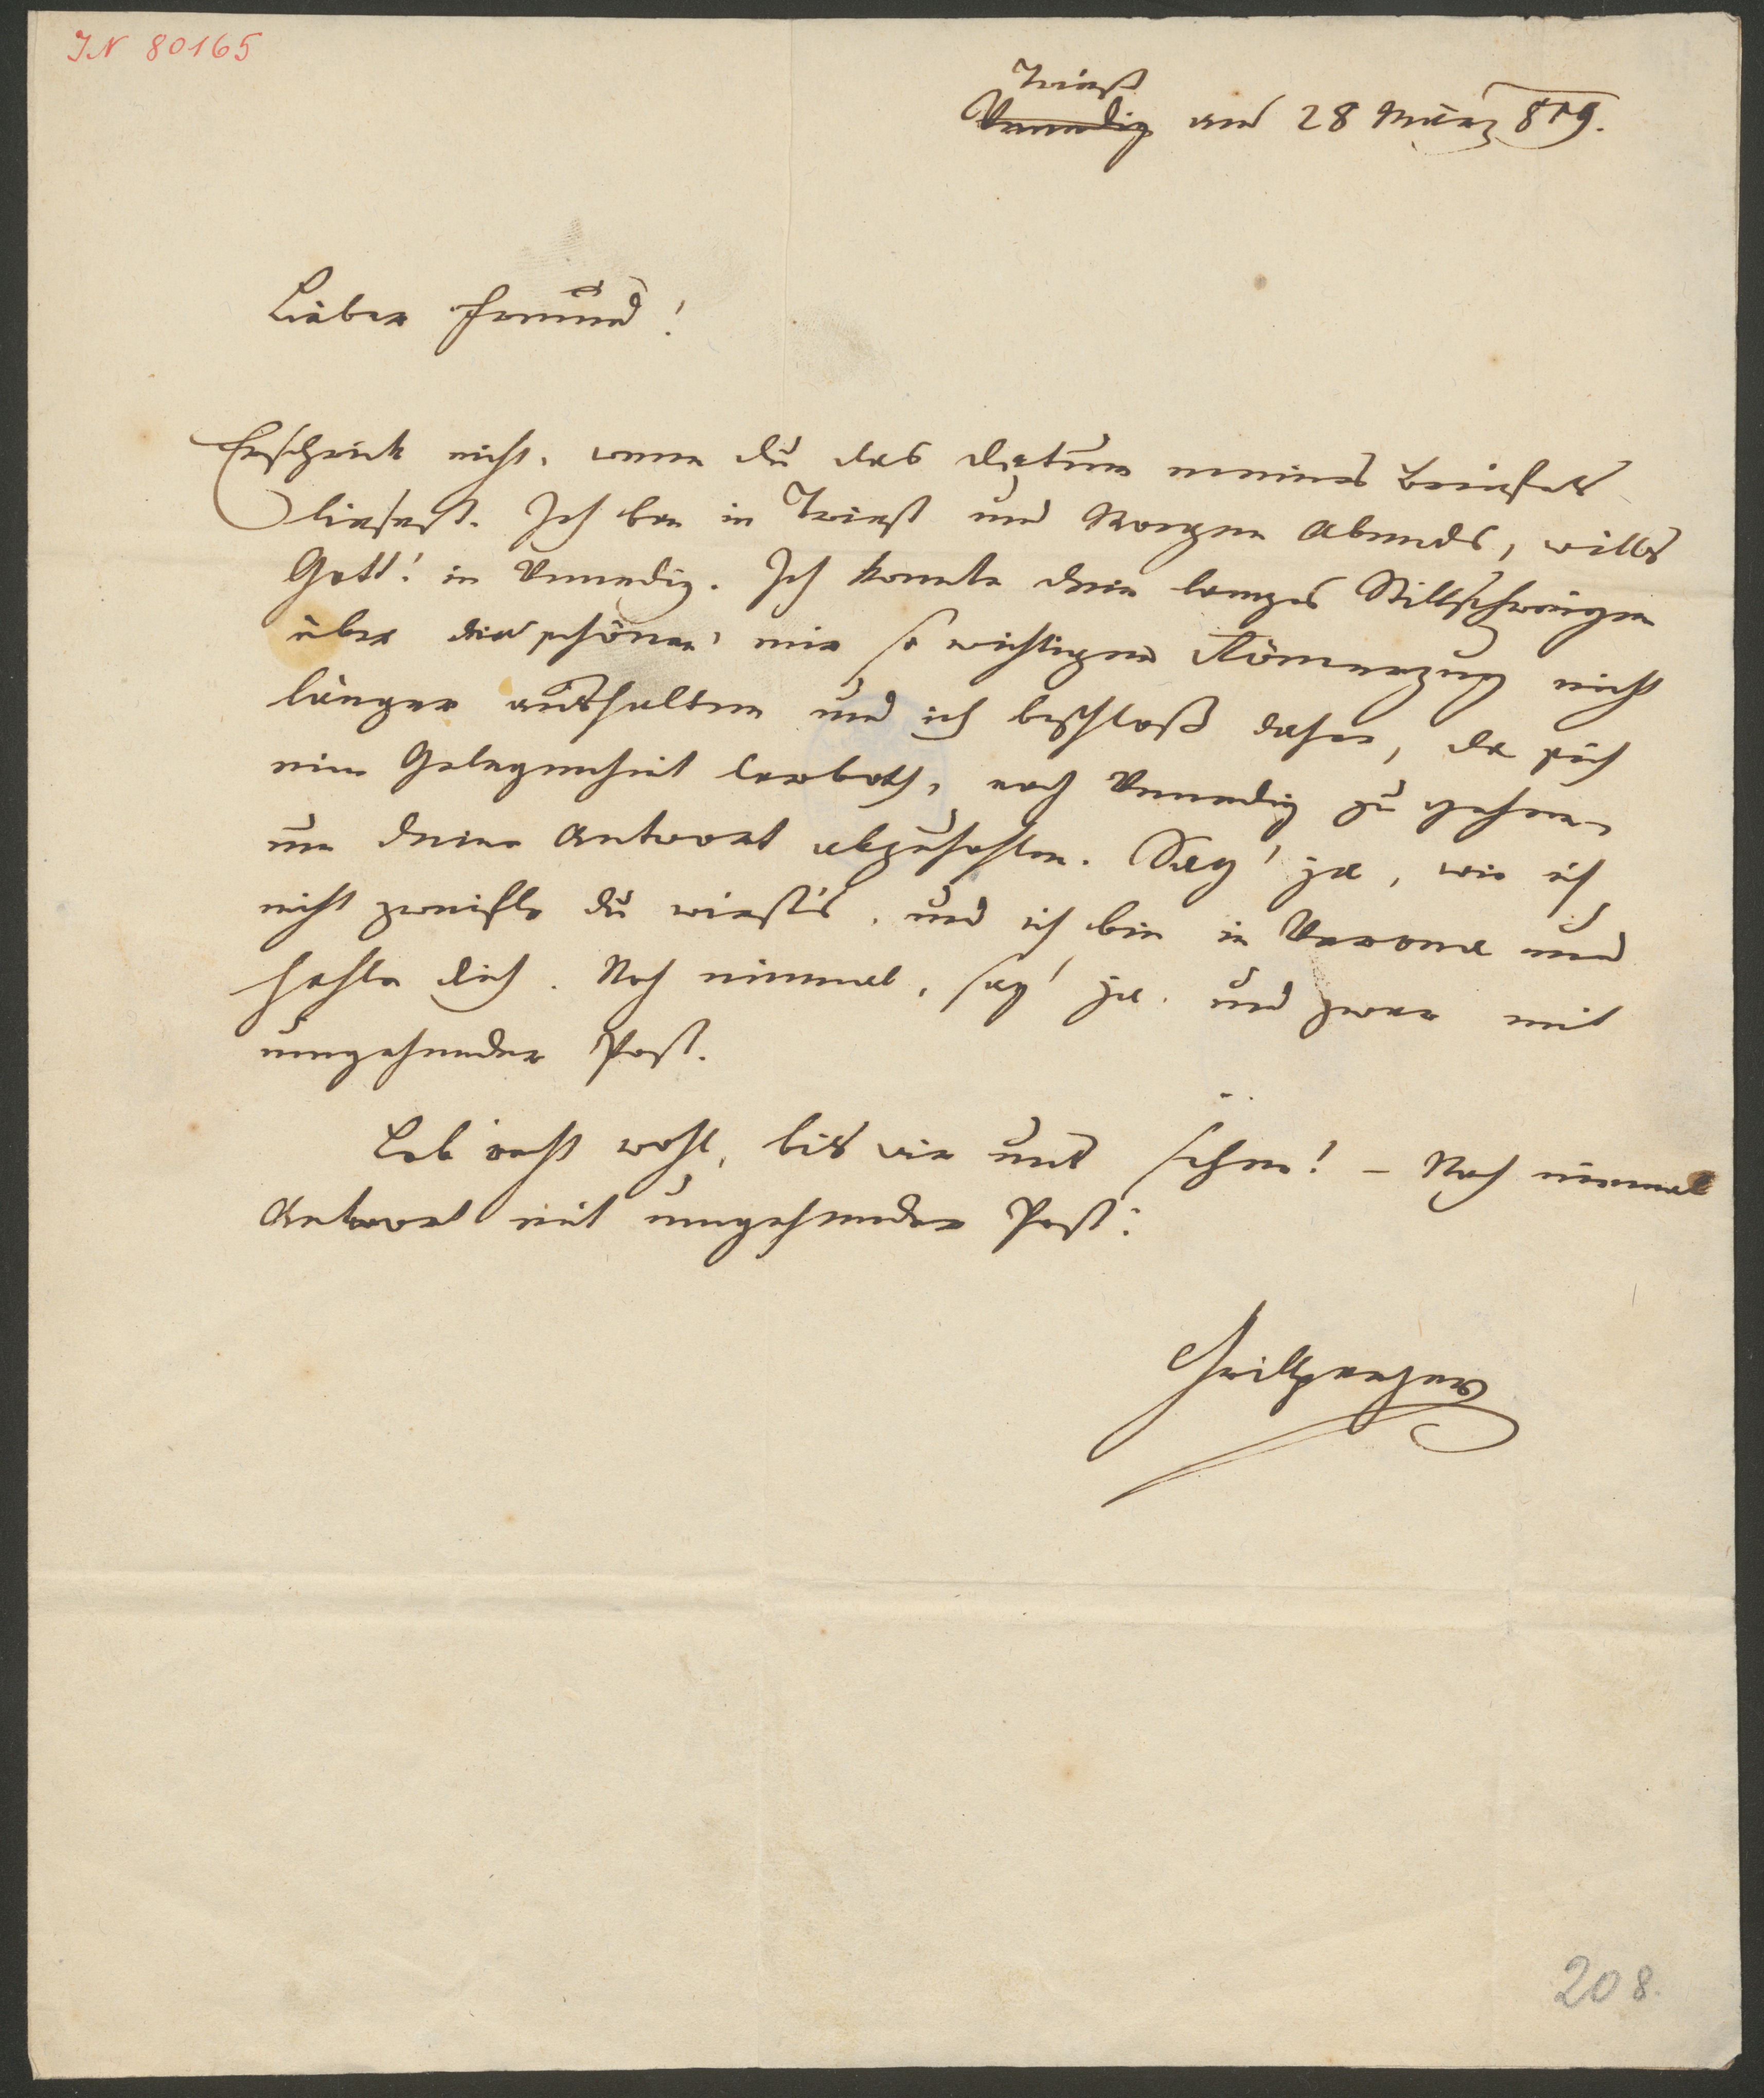 IN 80165
Triest
Venedig am 28 März 819.
Lieber Freund!
Erschrick nicht, wenn du das Datum meines Briefes
liesest. Ich bin in Triest und Morgen Abends, wills
Gott! in Venedig. Ich konnte dein langes Stillschweigen
über die schönen, mir so wichtigen Römerzug nicht
länger aushalten und ich beschloß daher, da sich
eine Gelegenheit darboth, nach Venedig zu gehen,
um deine Antwort abzuhohlen. Sag' ja, wie ich
nicht zweifle du wirst's, und ich bin in Verona und
hohle dich. Noch einmal, sag' ja, und zwar mit
umgehender Post.
Leb recht wohl, bis wir uns sehen! – Noch einmal
Antwort mit umgehender Post:
Grillparzer
208.